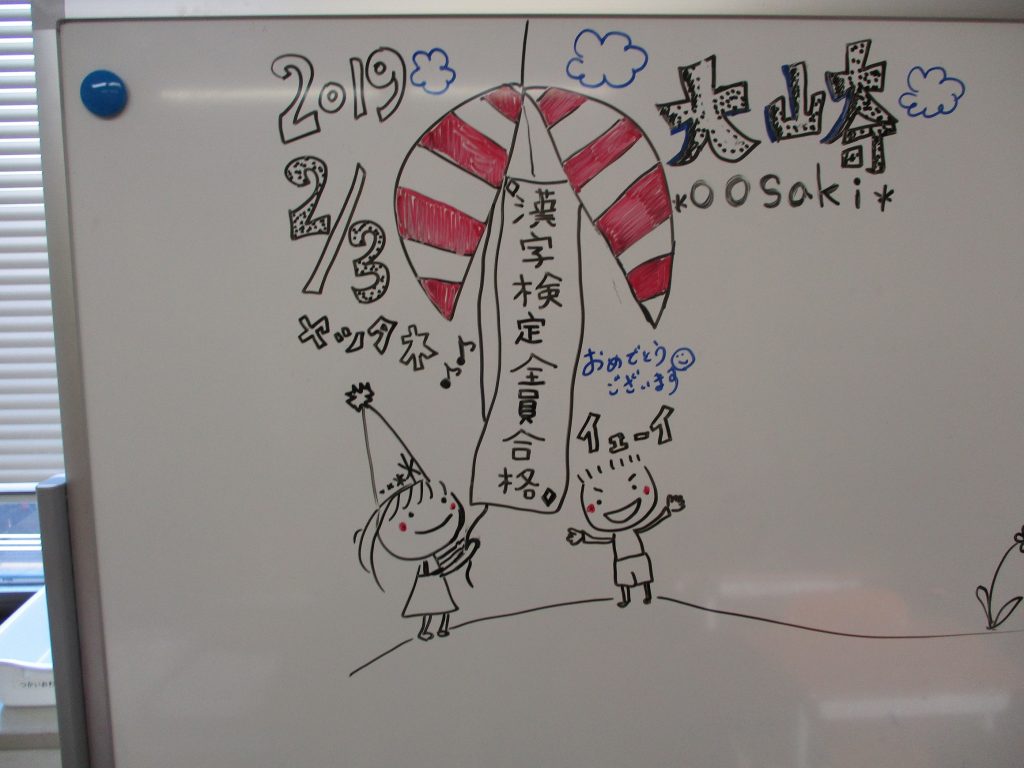 2019
2/3
ヤッタネ
漢字検定全員合格
おめでとう
ございます
イェーイ
大山崎
*oosaki*